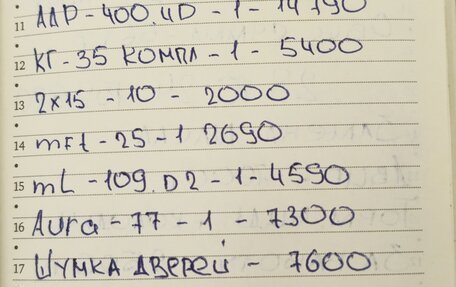 11 AAP - 400.4D - 1 - 14790
12 КГ - 35 КОМПЛ - 1 - 5400
13 2x15 - 10 - 2000
14 mFt - 25 - 1 2690
15 mL - 109.D2 - 1 - 4590
16 Aura - 77 - 1 - 7300
17 ШУМКА ДВЕРЕЙ - 7600